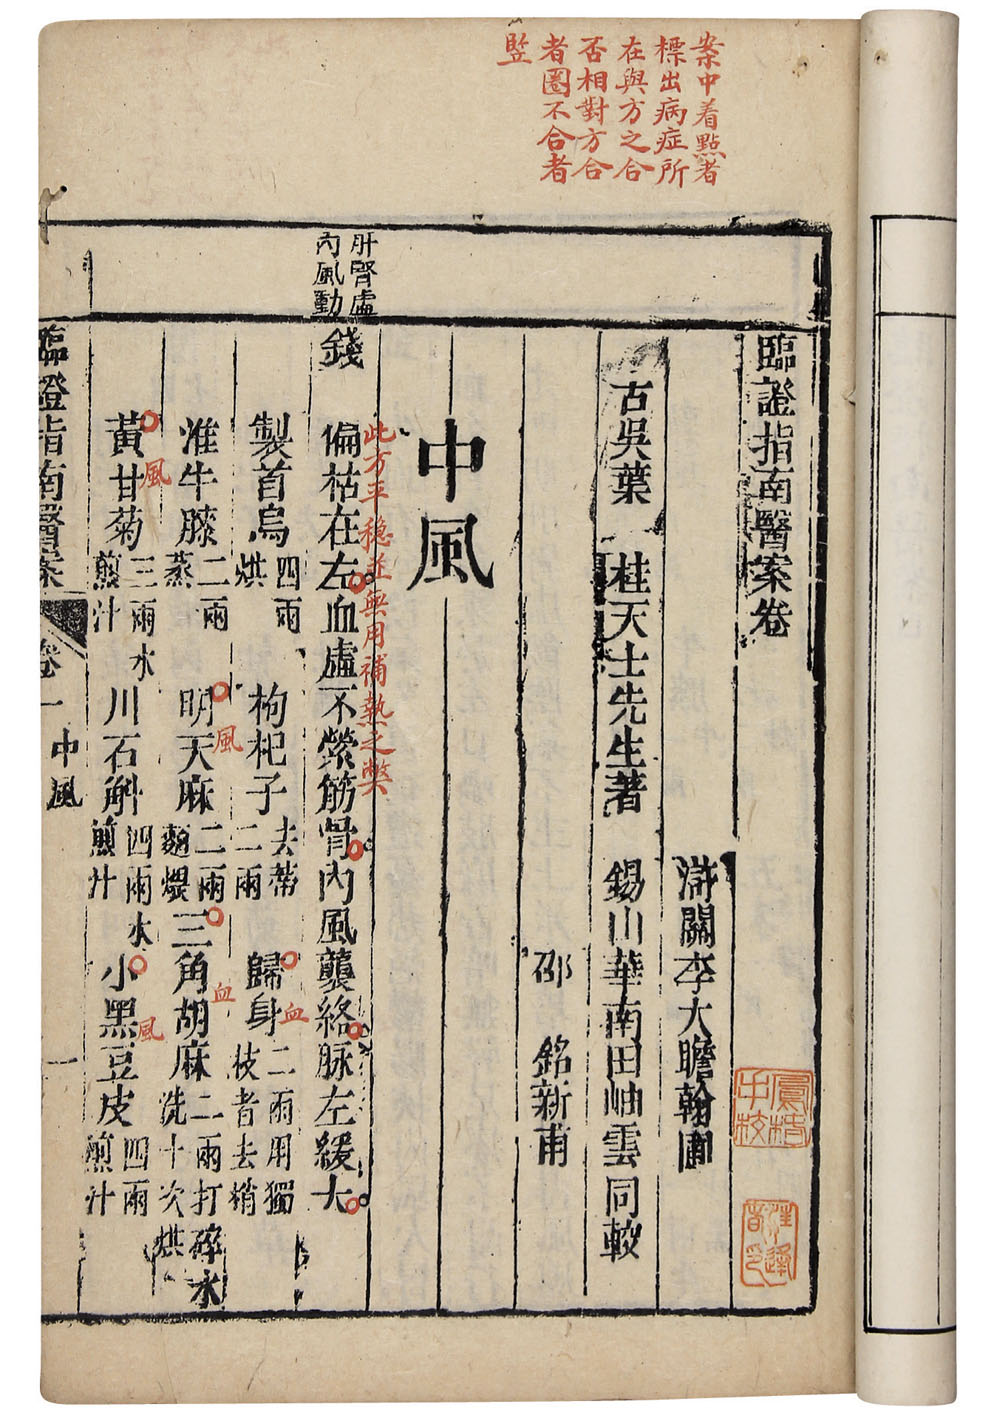 案中着點者
標出病症所
在與方之合
否相對方合
者圈不合者
竖
臨證指南醫案卷
滸關李大瞻翰圃
古吳葉桂天士先生著
錫山華南田岫雲同較
邵銘新甫
中風
肝腎虛
內風動
此方平穩並無用補熱之弊
錢
偏枯在左血虛不縈筋骨內風襲絡脉左緩大
製首烏四兩烘 枸杞子去蒂二兩 歸身二兩用獨枝者去梢
血
淮牛膝二兩蒸 明天麻二兩麵煨 三角胡麻二兩打碎水洗十次烘
風
血
黃甘菊三兩水煎汁 川石斛四兩水煎汁 小黑豆皮四兩煎汁
風
風
臨證指南醫案
卷一
中風
一